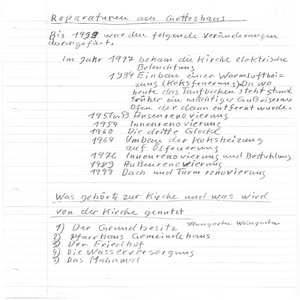 Reparaturen am Gotteshaus
Bis 1999 wurden folgende Veränderungen
durchgefürt.
Im Jahr 1917 bekam die Kirche elektrische
Beleuchtung
1934 Einbau einer Warmlufthei-
zung (Koksfeuerung) Da wo
heute das Taufbecken steht stand
früher ein mächtiger Gußeiserner
Ofen der dann entfernt wurde.
1951 Ausenrenovierung
1954 Innenrenovierung
1960 Die dritte Glocke
1964 Umbau der Koksheizung
auf Ölfeuerung
1976 Innenrenovierung und Bestuhlung
1989 Außenrenovierung
1999 Dach und Turm renovierung
Was gehörte zur Kirche und was wird
von der Kirche genutzt
Pfarrgarten Weingarten
1) Der Grundbesitz
2) Pfarrhaus Gemeindehaus
3) Der Friedhof
4) Die Wasserversorgung
5) Das Mahnmal